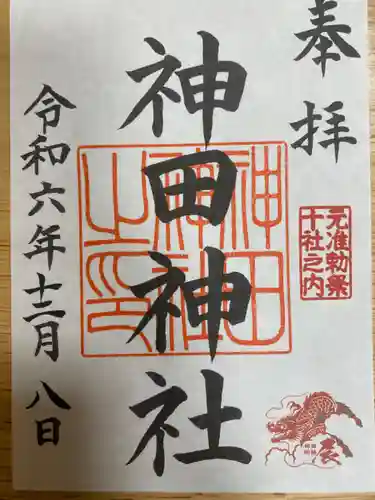 奉拝
元准勅祭
十社之内
神田神社
神田
神社
之印
令和六年十二月八日